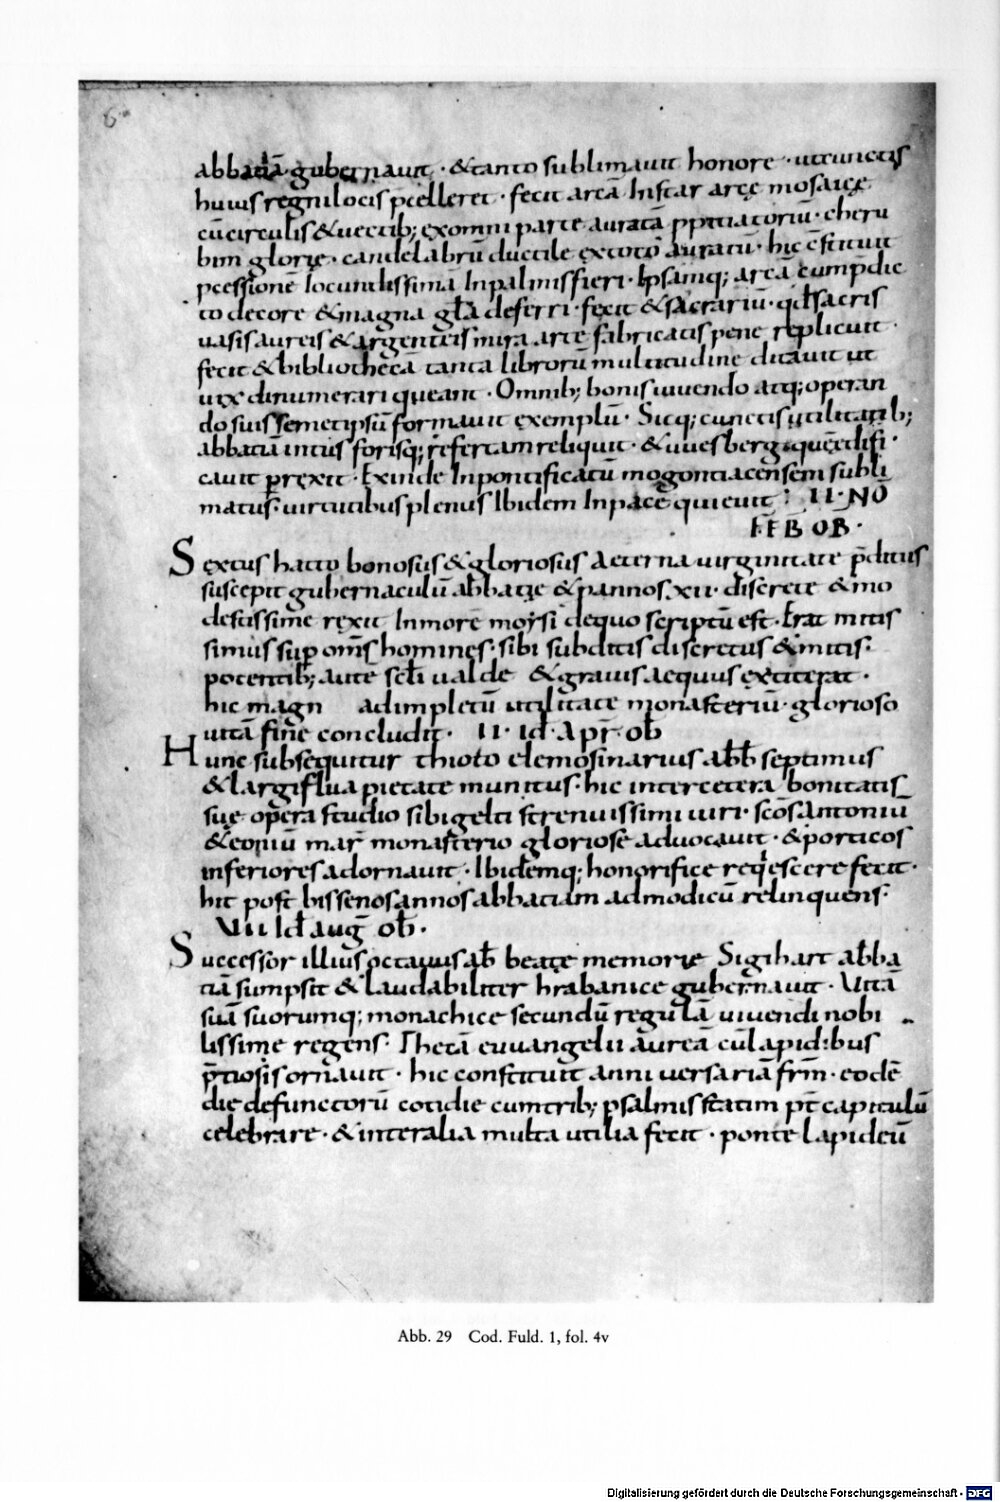 6
abbatiā gubernauit · &tanto sublimauit honore · utcunctis
huius regni locis p̄celleret · fecit arcā Instar arcę mosaicę
cūcirculis &uectib; exomni parte auratā ppitiatoriū · cheru
bim glorię · candelabrū ductile extoto auratū · hic c̄stituit
p̄cessionē Iocundissimā Inpalmisfieri · Ipsāmq; arcā cump̄dic
to decore &magna gl̄a deferri · fecit &sacrariū · qd̄ sacris
uasis aureis &argenteis mira arte fabricatis pene repleuit ·
fecit &bibliothecā tanta librorū multitudine ditauit ut
uix dinumerari queant · Omnib; bonis uiuendo atq; operan
do suis semetipsū formauit exemplū · Sicq; cunctis utilitatib;
abbatiā intus forisq; refertam reliquit · &uuesbergi quēdifi ·
cauit p̄rexit · Exinde Inpontificatū mogontiacensem subli
matus · uirtutibus plenus Ibidem Inpace quieuit : II · NO
FEB OB ·
Sextus hatto bonosus &gloriosus aeterna uirginitate p̄ditus
suscepit gubernaculū abbatię &pannos · xii · discrete &mo
destissime rexit Inmore moysi dequo scriptū est · Erat mitis
simus sup om̄s homines · sibi subditis discretus &mitis ·
potentib; aute scl̄i ualde &grauis aequus extiterat ·
hic magn adimpletū utilitate monasteriū · glorioso
uitā fine concludit · II · id · Apr̄ · ob̄
Hunc subsequitur thioto elemosinarius abb̄ septimus
&largiflua pietate munitus · hic intercetera bonitatis
suę opera studio sibigelti strenuissimi uiri · sc̄os antoniū
&eoniū mar̄ monasterio gloriose aduocauit · &porticos
inferiores adornauit · Ibidemq; honorifice reqescere fecit ·
hic post bissenos annos abbatiam admodicū relinquens ·
VII Id aug̅ ob̄ ·
Successor illius octauus ab̄ beatę memorię Sigihart abba
tiā sumpsit &laudabiliter hrabanice gubernauit · Vitā
suā suorumq; monachice secundū regulā uiuendi nobi
lissime regens · Thecā euuangelii aureā cū lapidibus
p̄tiosis ornauit · hic constituit anniuersariā frm̄ · eodē
die defunctorū cotidie cumtrib; psalmis statim pt̄ capitulū
celebrare · &interalia multa utilia fecit · ponte lapideū
Abb. 29 Cod. Fuld. 1, fol. 4v
Digitalisierung gefördert durch die Deutsche Forschungsgemeinschaft - DFG